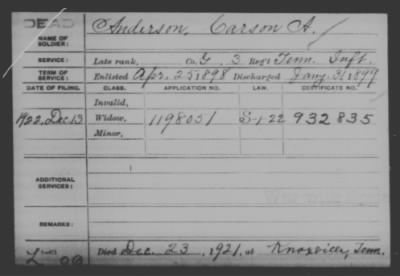 DEAD
NAME OF SOLDIER: Anderson, Carson A.
SERVICE: Late rank, Co. G, 3 Reg't Tenn. Inft.
TERM OF SERVICE: Enlisted Apr. 25 1898 Discharged Jany. 31 1899
DATE OF FILING. CLASS. APPLICATION NO. LAW. CERTIFICATE NO.
Invalid,
1922, Dec. 13 Widow, 1198051 S-1-22 932835
Minor,
ADDITIONAL SERVICES:
REMARKS:
Died Dec. 23, 1921, at Knoxville, Tenn.